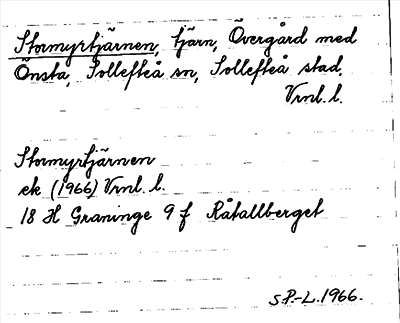 Stormyrtjärnen, tjärn, Övergård med
Önsta, Sollefteå sn, Sollefteå stad,
Vrnl. l.
Stormyrtjärnen
ek (1966) Vrnl. l.
18 H Graninge 9 f Råtallberget
S.P.-L. 1966.